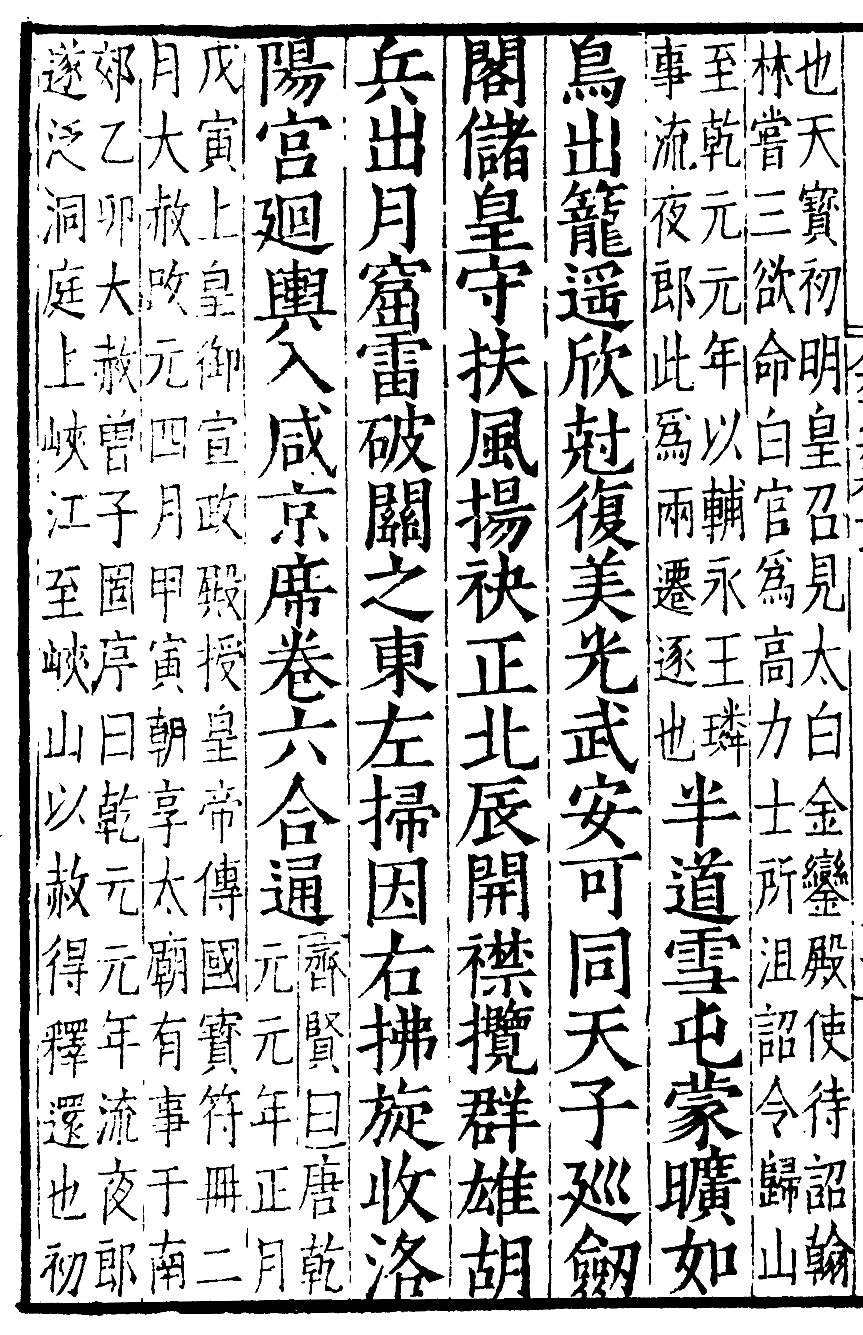 也天寶初明皇召見太白金鑾殿使待詔翰
林嘗三欲命白官爲高力士所沮詔令歸山
至乾元元年以輔永王璘
事流夜郎此爲兩遷逐也
半道雪屯蒙曠如
鳥出籠遥欣尅復美光武安可同天子廵劒
閣儲皇守扶風揚袂正北辰開襟攬群雄胡
兵出月窟雷破關之東左掃因右拂旋收洛
陽宫廻輿入咸京席卷六合通
齊賢曰唐乾
元元年正月
戊寅上皇御宣政殿授皇帝傳國寳符冊二
月大赦改元四月甲寅朝享太廟有事于南
郊乙卯大赦曽子固序曰乾元元年流夜郎
遂泛洞庭上峽江至峽山以赦得釋還也初